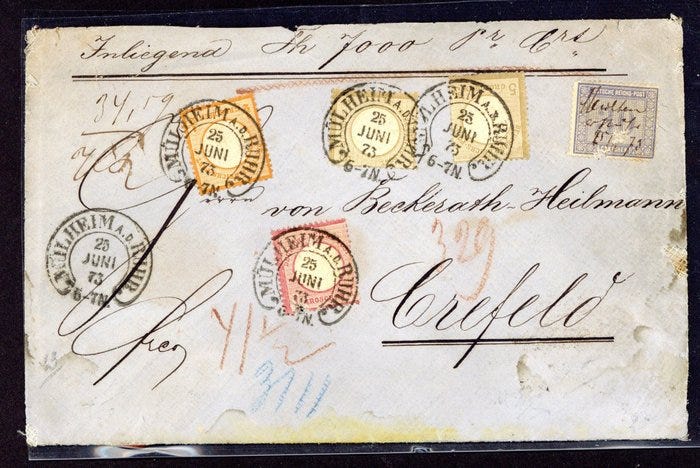 Inliegend Th 7000 Pr Crt
34,59
DEUTSCHE REICHS-POST
25/6 73
MÜLHEIM A.D. RUHR.
25
JUNI
73
6-7N.
MÜLHEIM A.D. RUHR.
25
JUNI
73
6-7N.
MÜLHEIM A.D. RUHR.
25
JUNI
73
6-7N.
5
Herrn von Beckerath-Heilmann
MÜLHEIM A.D. RUHR.
25
JUNI
73
6-7N.
MÜLHEIM A.D. RUHR.
25
JUNI
73
6-7N.
329
Crefeld
frco